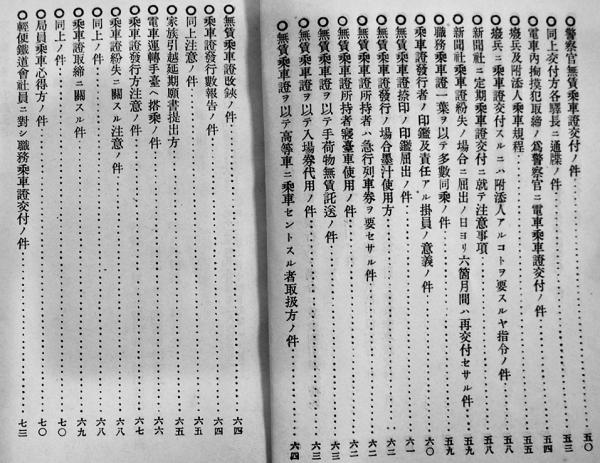 ◎警察官無賃乘車證交付ノ件………五〇
◎同上交付方各驛長ニ通牒ノ件………五三
◎電車內掏摸犯取締ノ爲警察官ニ電車乘車證交付ノ件………五四
◎癈兵及附添人乘車規程………五五
◎癈兵ニ乘車證交付スルニハ附添人アルコトヲ要スルヤ指令ノ件………五八
◎新聞社ニ定期乘車證交付ニ就テ注意事項………五八
◎新聞社乘車證紛失ノ場合ニ屆出ノ日ヨリ六箇月間ハ再交付セサル件………五九
◎職務乘車證一葉ヲ以テ多數同乘ノ件………五九
◎乘車證發行者ノ印鑑及責任アル掛員ノ意義ノ件………六〇
◎無賃乘車證捺印ノ印鑑屆出ノ件………六一
◎無賃乘車證發行ノ場合墨汁使用方………六二
◎無賃乘車證所持者寢臺車使用ノ件………六二
◎無賃乘車證所持者ハ急行列車券ヲ要セサル件………六二
◎無賃乘車證ヲ以テ手荷物無賃託送ノ件………六三
◎無賃乘車證ヲ以テ入場券代用ノ件………六三
◎無賃乘車證ヲ以テ高等車ニ乘車セントスル者取扱方ノ件………六四
◎無賃乘車證改鋏ノ件………六四
◎乘車證發行數報告ノ件………六四
◎同上注意ノ件………六五
◎家族引越延期願書提出方………六五
◎電車運轉手臺ヘ搭乘ノ件………六六
◎乘車證發行方注意ノ件………六六
◎乘車證紛失ニ關スル注意ノ件………六八
◎同上ノ件………六八
◎乘車證取締ニ關スル件………六九
◎同上ノ件………七〇
◎局員乘車心得方ノ件………七〇
◎輕便鐵道會社員ニ對シ職務乘車證交付ノ件………七三